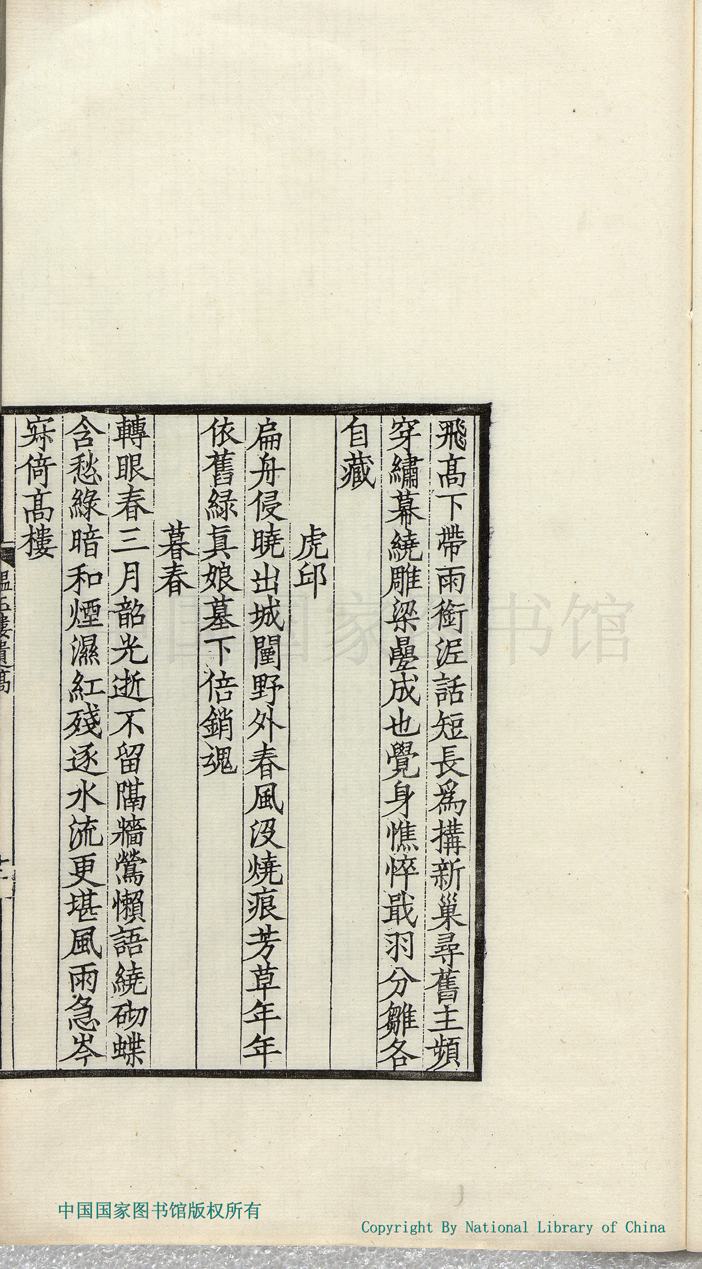 飛髙下帶雨銜泥話短長為搆新巢尋舊主頻
穿繡幕繞雕梁壘成也覺身憔悴戢羽分雛各
自藏
虎邱
扁舟侵曉出城闉野外春風没燒痕芳草年年
依舊緑真娘墓下倍銷魂
暮春
轉眼春三月韶光逝不留隔牆鶯懶語繞砌蝶
含愁緑暗和煙濕紅殘逐水流更堪風雨急岑
寂倚髙樓
中国国家图书馆
中国国家图书馆版权所有
Copyright By National Library of China